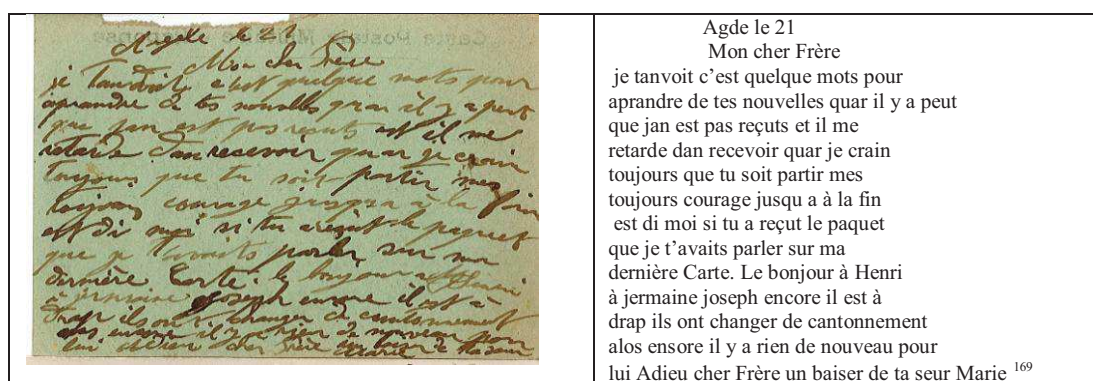 Agde le 21
Mon cher Frère
je tanvoit c est quelque mots pour
aprandre de tes nouvelles quar il y a peut
que jan est pas reçuts est il me
retarde dan recevoir quar je crain
toujours que tu soit partir mes
toujours courage jusqua à la fin
est di moi si tu a reçut le paquet
que je t'avaits parler sur ma
dernière Carte. le bonjour a Henri
à jermaine joseph encore il est à
drap ils ont changer de cantonnement
alos ensore il y a rien de nouveau pour
lui Adieu cher Frère un baiser de ta seur
Marie
Agde le 21
Mon cher Frère
je tanvoit c’est quelque mots pour
aprandre de tes nouvelles quar il y a peut
que jan est pas reçuts et il me
retarde dan recevoir quar je crain
toujours que tu soit partir mes
toujours courage jusqu a à la fin
est di moi si tu a reçut le paquet
que je t’avaits parler sur ma
dernière Carte. Le bonjour à Henri
à jermaine joseph encore il est à
drap ils ont changer de cantonnement
alos ensore il y a rien de nouveau pour
lui Adieu cher Frère un baiser de ta seur Marie 169